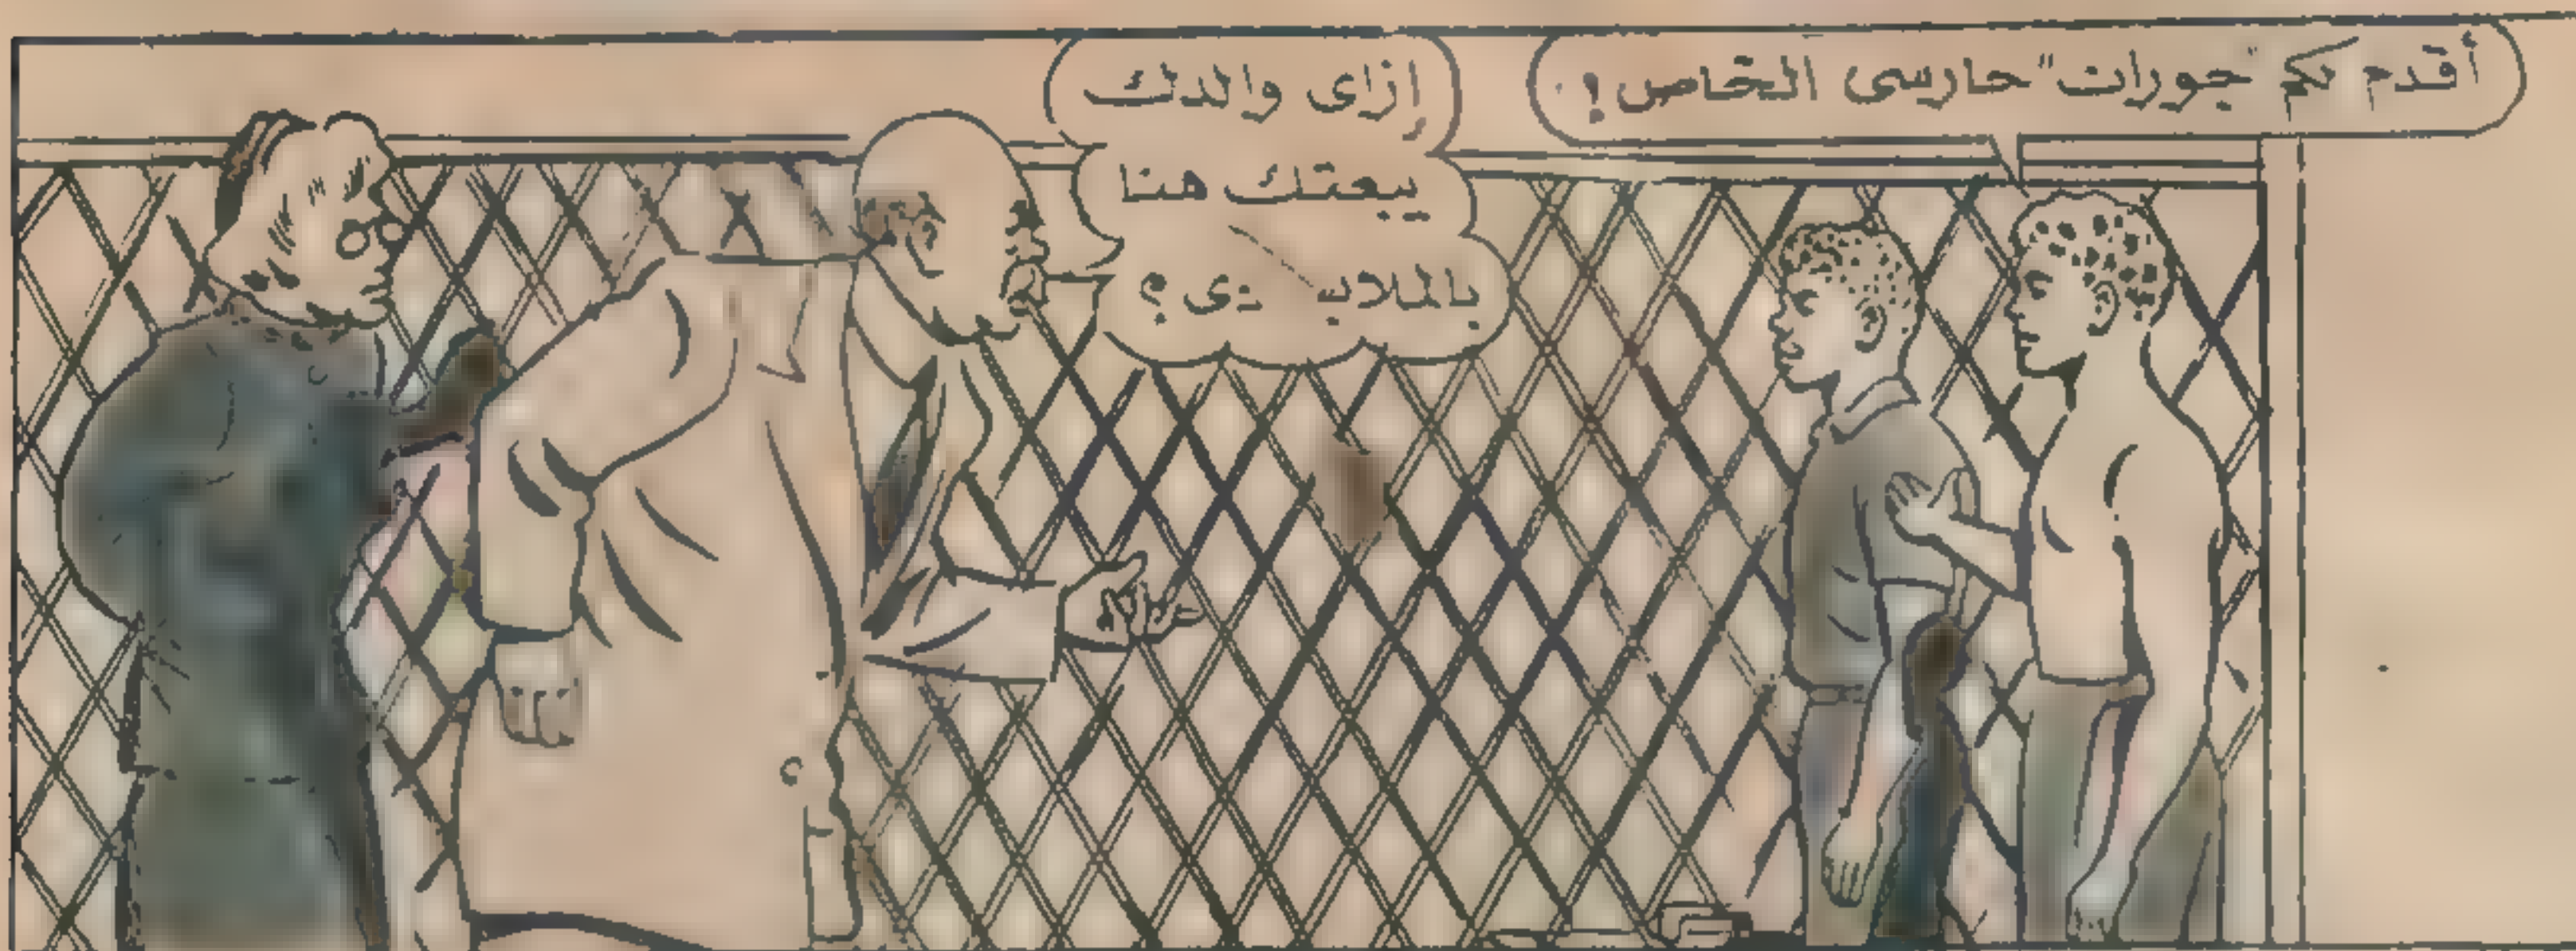 أقدم لكم "جورات" حارسى الخاص!
إزاى والدك
يبعتك هنا
بالملابس دى؟